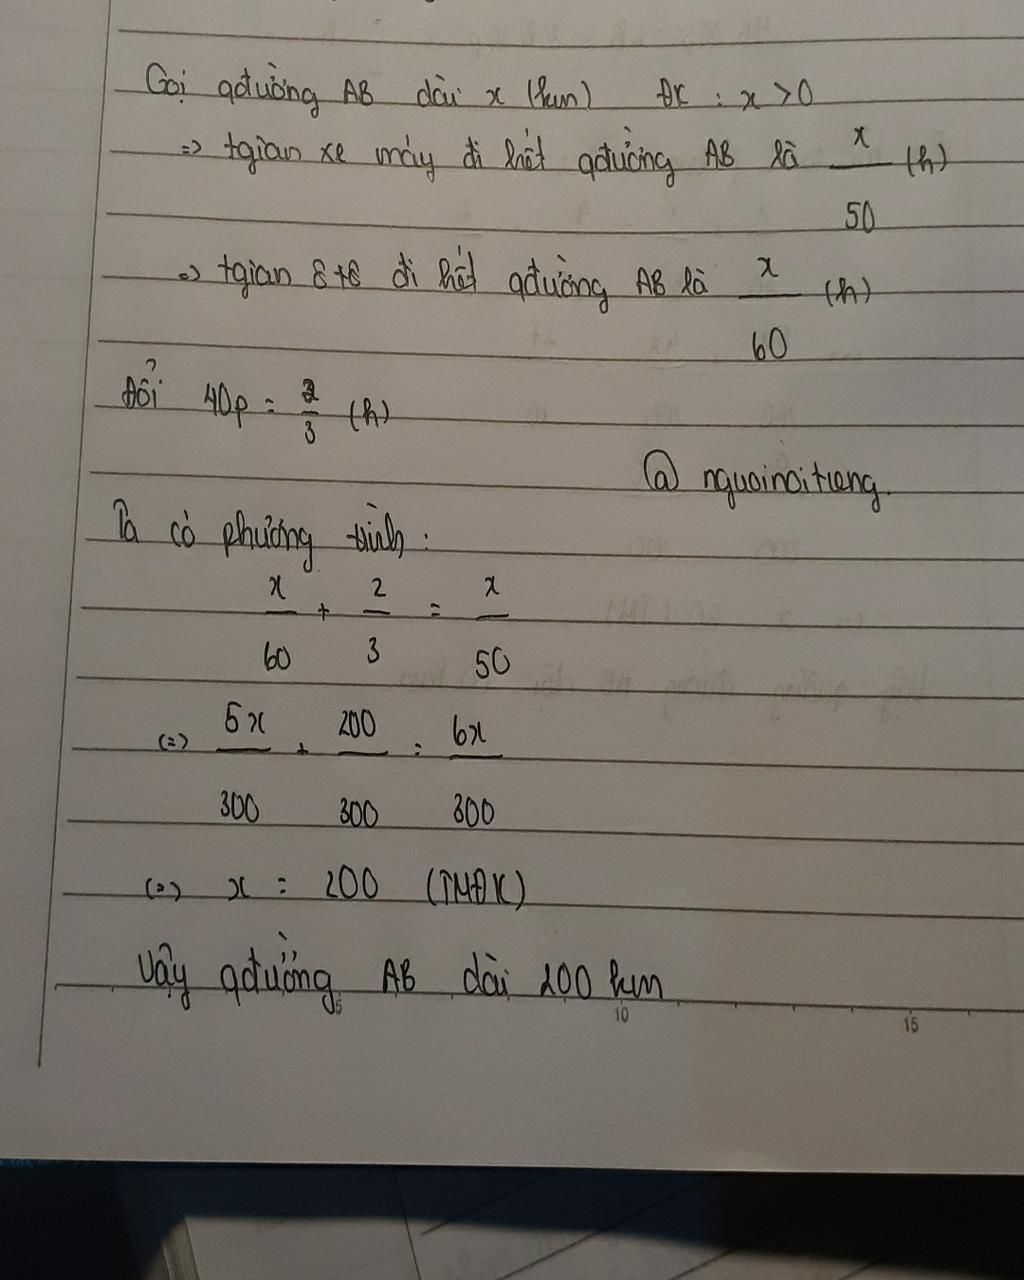 Gọi qđường AB dài x (km) ĐK : x > 0
=> tgian xe máy đi hết qđường AB là x/50 (h)
=> tgian ô tô đi hết qđường AB là x/60 (h)
Đổi 40p = 2/3 (h)
@ nguoinoitieng.
Ta có phương trình :
x/60 + 2/3 = x/50
(=) 5x/300 + 200/300 = 6x/300
(=) x = 200 (TMĐK)
Vậy qđường AB dài 200 km
5 10 15